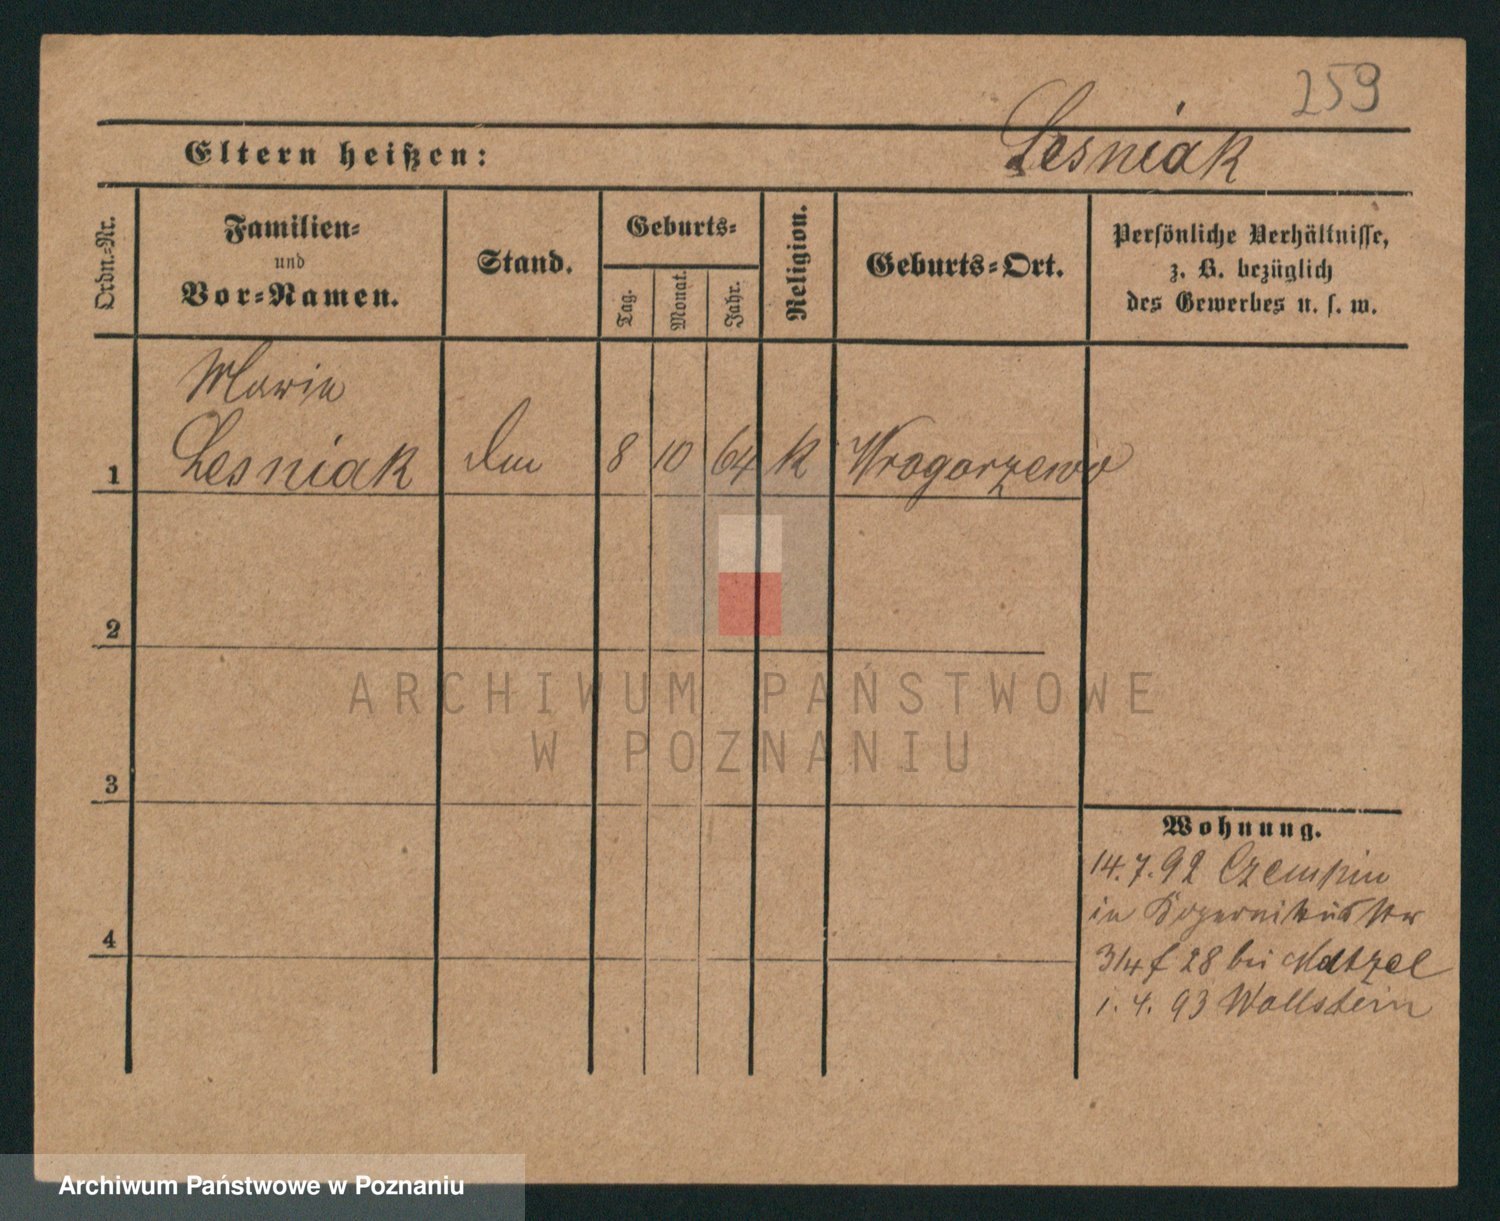 259
Eltern heißen:
Lesniak
Ordn.-Nr.
Familien-
und
Vor-Namen.
Stand.
Geburts-
Tag.
Monat.
Jahr.
Religion.
Geburts-Ort.
Persönliche Verhältnisse,
z. B. bezüglich
des Gewerbes u. s. w.
Marie
1 Lesniak 8 10 64 k Wragarzewo
2
3
4
Wohnung.
14.7.92 Czempin
in
3/4 f 28 bei Matzel
1. 4. 93 Wollstein
ARCHIWUM PAŃSTWOWE
W POZNANIU
Archiwum Państwowe w Poznaniu